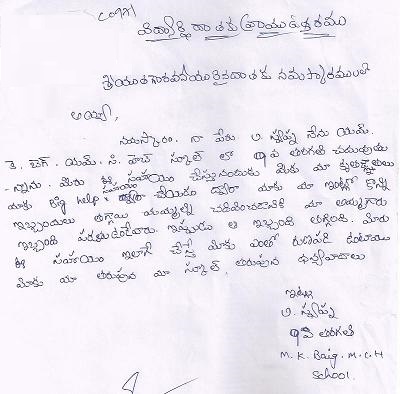 విద్యార్థి దాతకు వ్రాయు ఉత్తరము
శ్రీయుత గౌరవనీయులైన దాతకు నమస్కారములు
అయ్యా,
నమస్కారం. నా పేరు ల. స్వప్న నేను యమ్.
కె. బెగ్. యమ్. సి. హెచ్ స్కూల్ లో 9వ తరగతి చదువుతు
-న్నాను. మీరు ఈ సహాయం చేస్తున్నందుకు మీకు మా కృతజ్ఞతలు
మాకు ఈ help సహాయం చేయడం ద్వారా మాకు మా ఇంట్లో కొన్ని
ఇబ్బందులు తగ్గాయి మమ్మల్ని చదివించడానికి మా అమ్మగారు
ఇబ్బంది పడుతుండేవారు. ఇప్పుడు ఆ ఇబ్బంది తగ్గింది. మీరు
ఈ సహాయం ఇలాగే చేస్తే మీకు ఎంతో రుణపడి ఉంటాము
మీకు మా తరుపున మా స్కూల్ తరుపున ధన్యవాదాలు
ఇట్లు
ల. స్వప్న
9వ తరగతి
M. K. Baig. M. C. H
School.